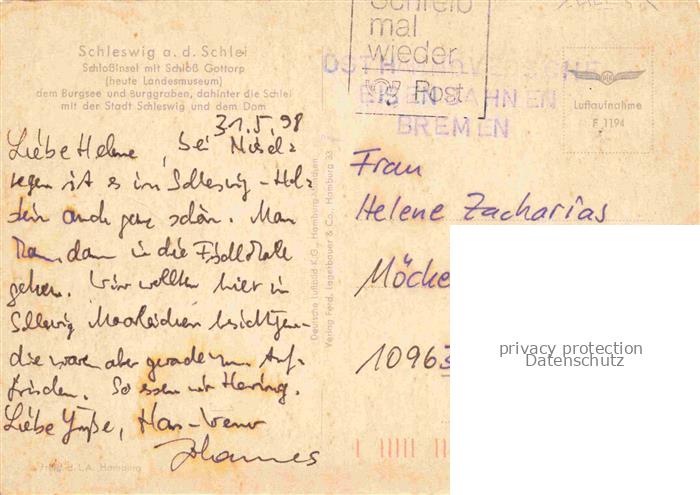 Schleswig a. d. Schlei
Schloßinsel mit Schloß Gottorp
(heute Landesmuseum)
dem Burgsee und Burggraben, dahinter die Schlei
mit der Stadt Schleswig und dem Dom
Schreib
mal
wieder
Post
OSTHANNOVERSCHE
EISENBAHNEN
BREMEN
Luftaufnahme
F 1194
31.5.98
Liebe Helene, bei Nisel-
regen ist es in Schleswig-Hol-
stein auch ganz schön. Man
kann dann in die Fischhalle
gehen. Wir wollten hier in
Schleswig Moorleichen besichtigen
die waren aber gerade zum Auf-
frischen. So essen wir Hering.
Liebe Grüße,
Johannes
Deutsche Luftbild K.G., Hamburg
Verlag Ferd. Lagerbauer & Co., Hamburg 23
Frau
Helene Zacharias
Möcke
10963
privacy protection
Datenschutz